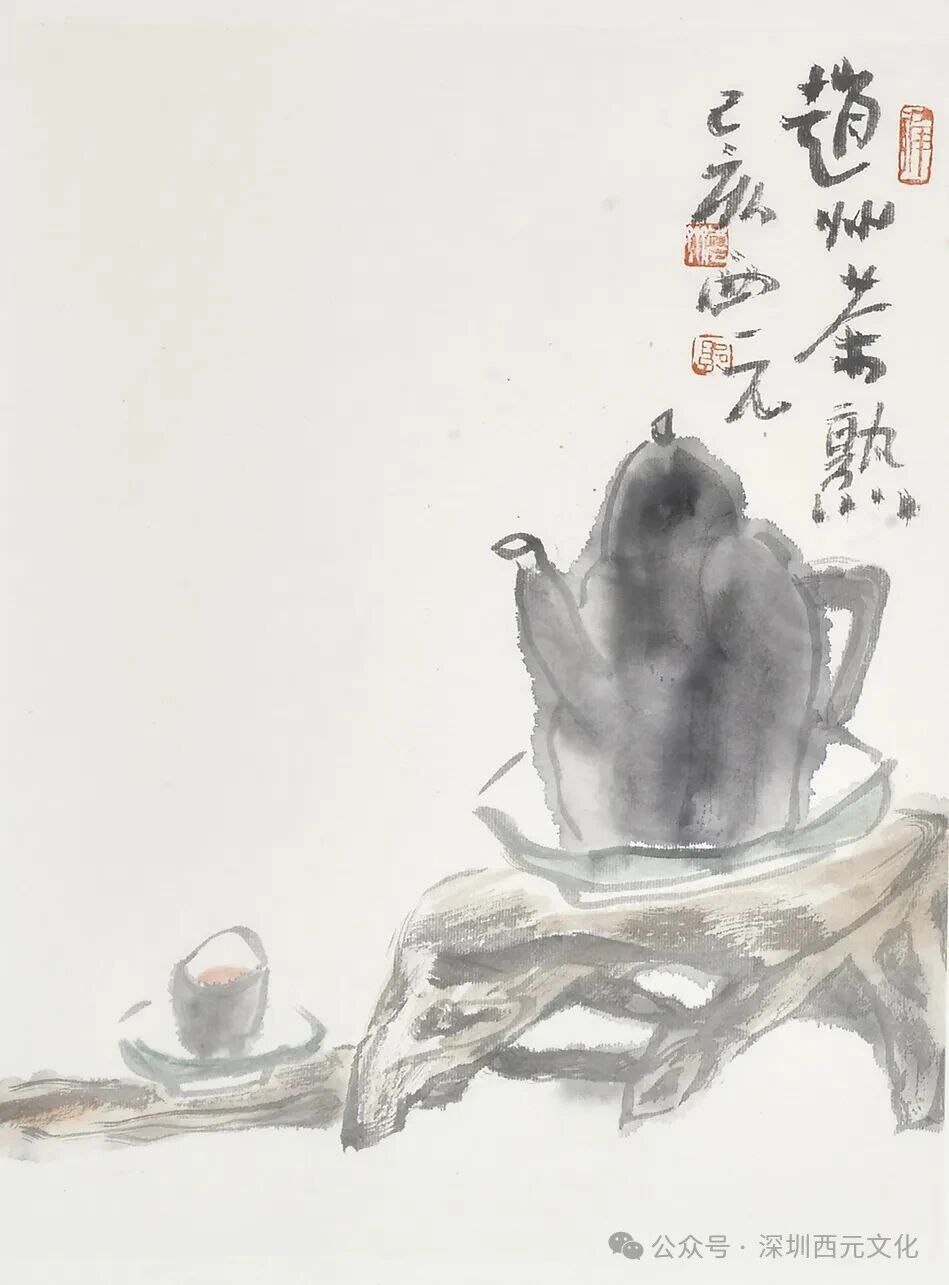 趙州茶熟
己亥西元
公众号 · 深圳西元文化